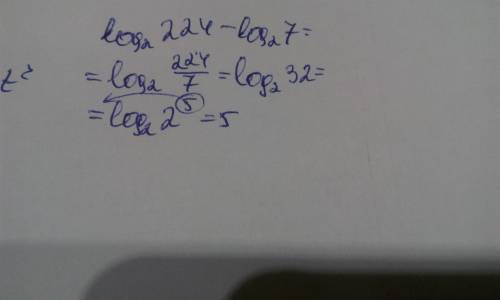 log₂ 224 - log₂ 7 =
= log₂ 224/7 = log₂ 32 =
= log₂ 2⁵ = 5